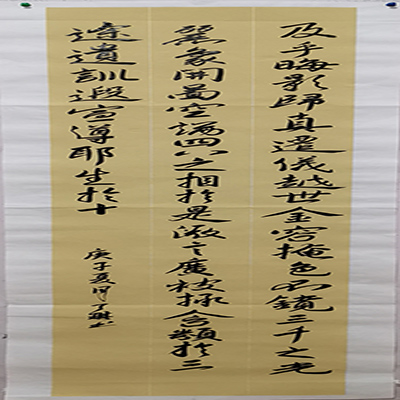 及乎晦影歸真遷儀越世金容掩色不鏡三千之光
麗象開圖空端四八之相於是微言廣被拯含類於三
途遺訓遐宣導耶生於十
庚子夏月